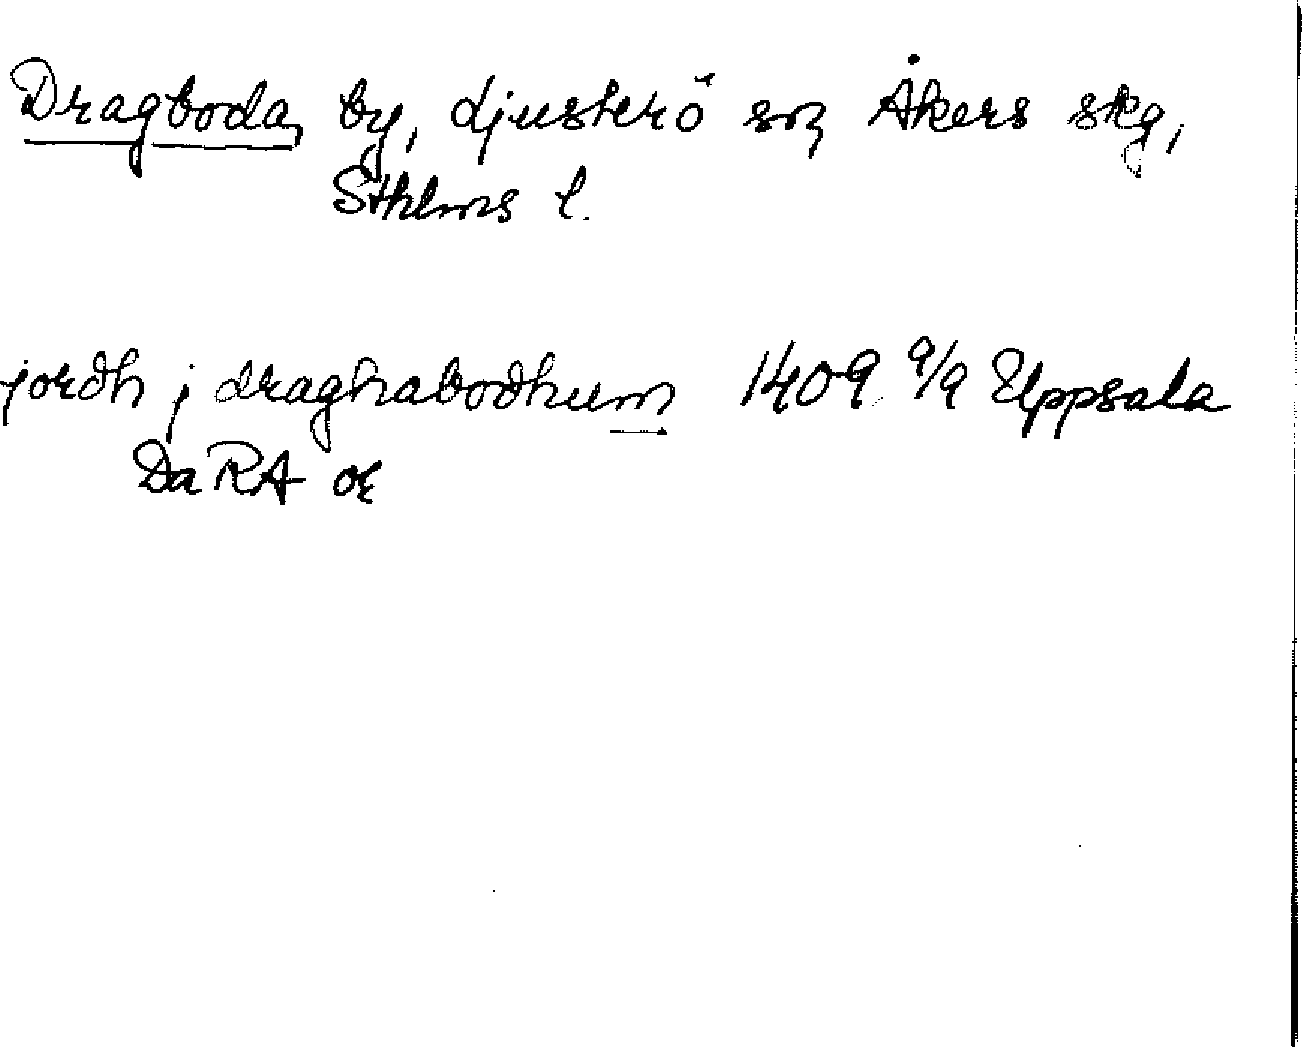 Dragboda, by, Ljusterö sn, Åkers skg,
Sthlms l.
jordh j draghabodhum 1409 9/9 Uppsala
Da RA or